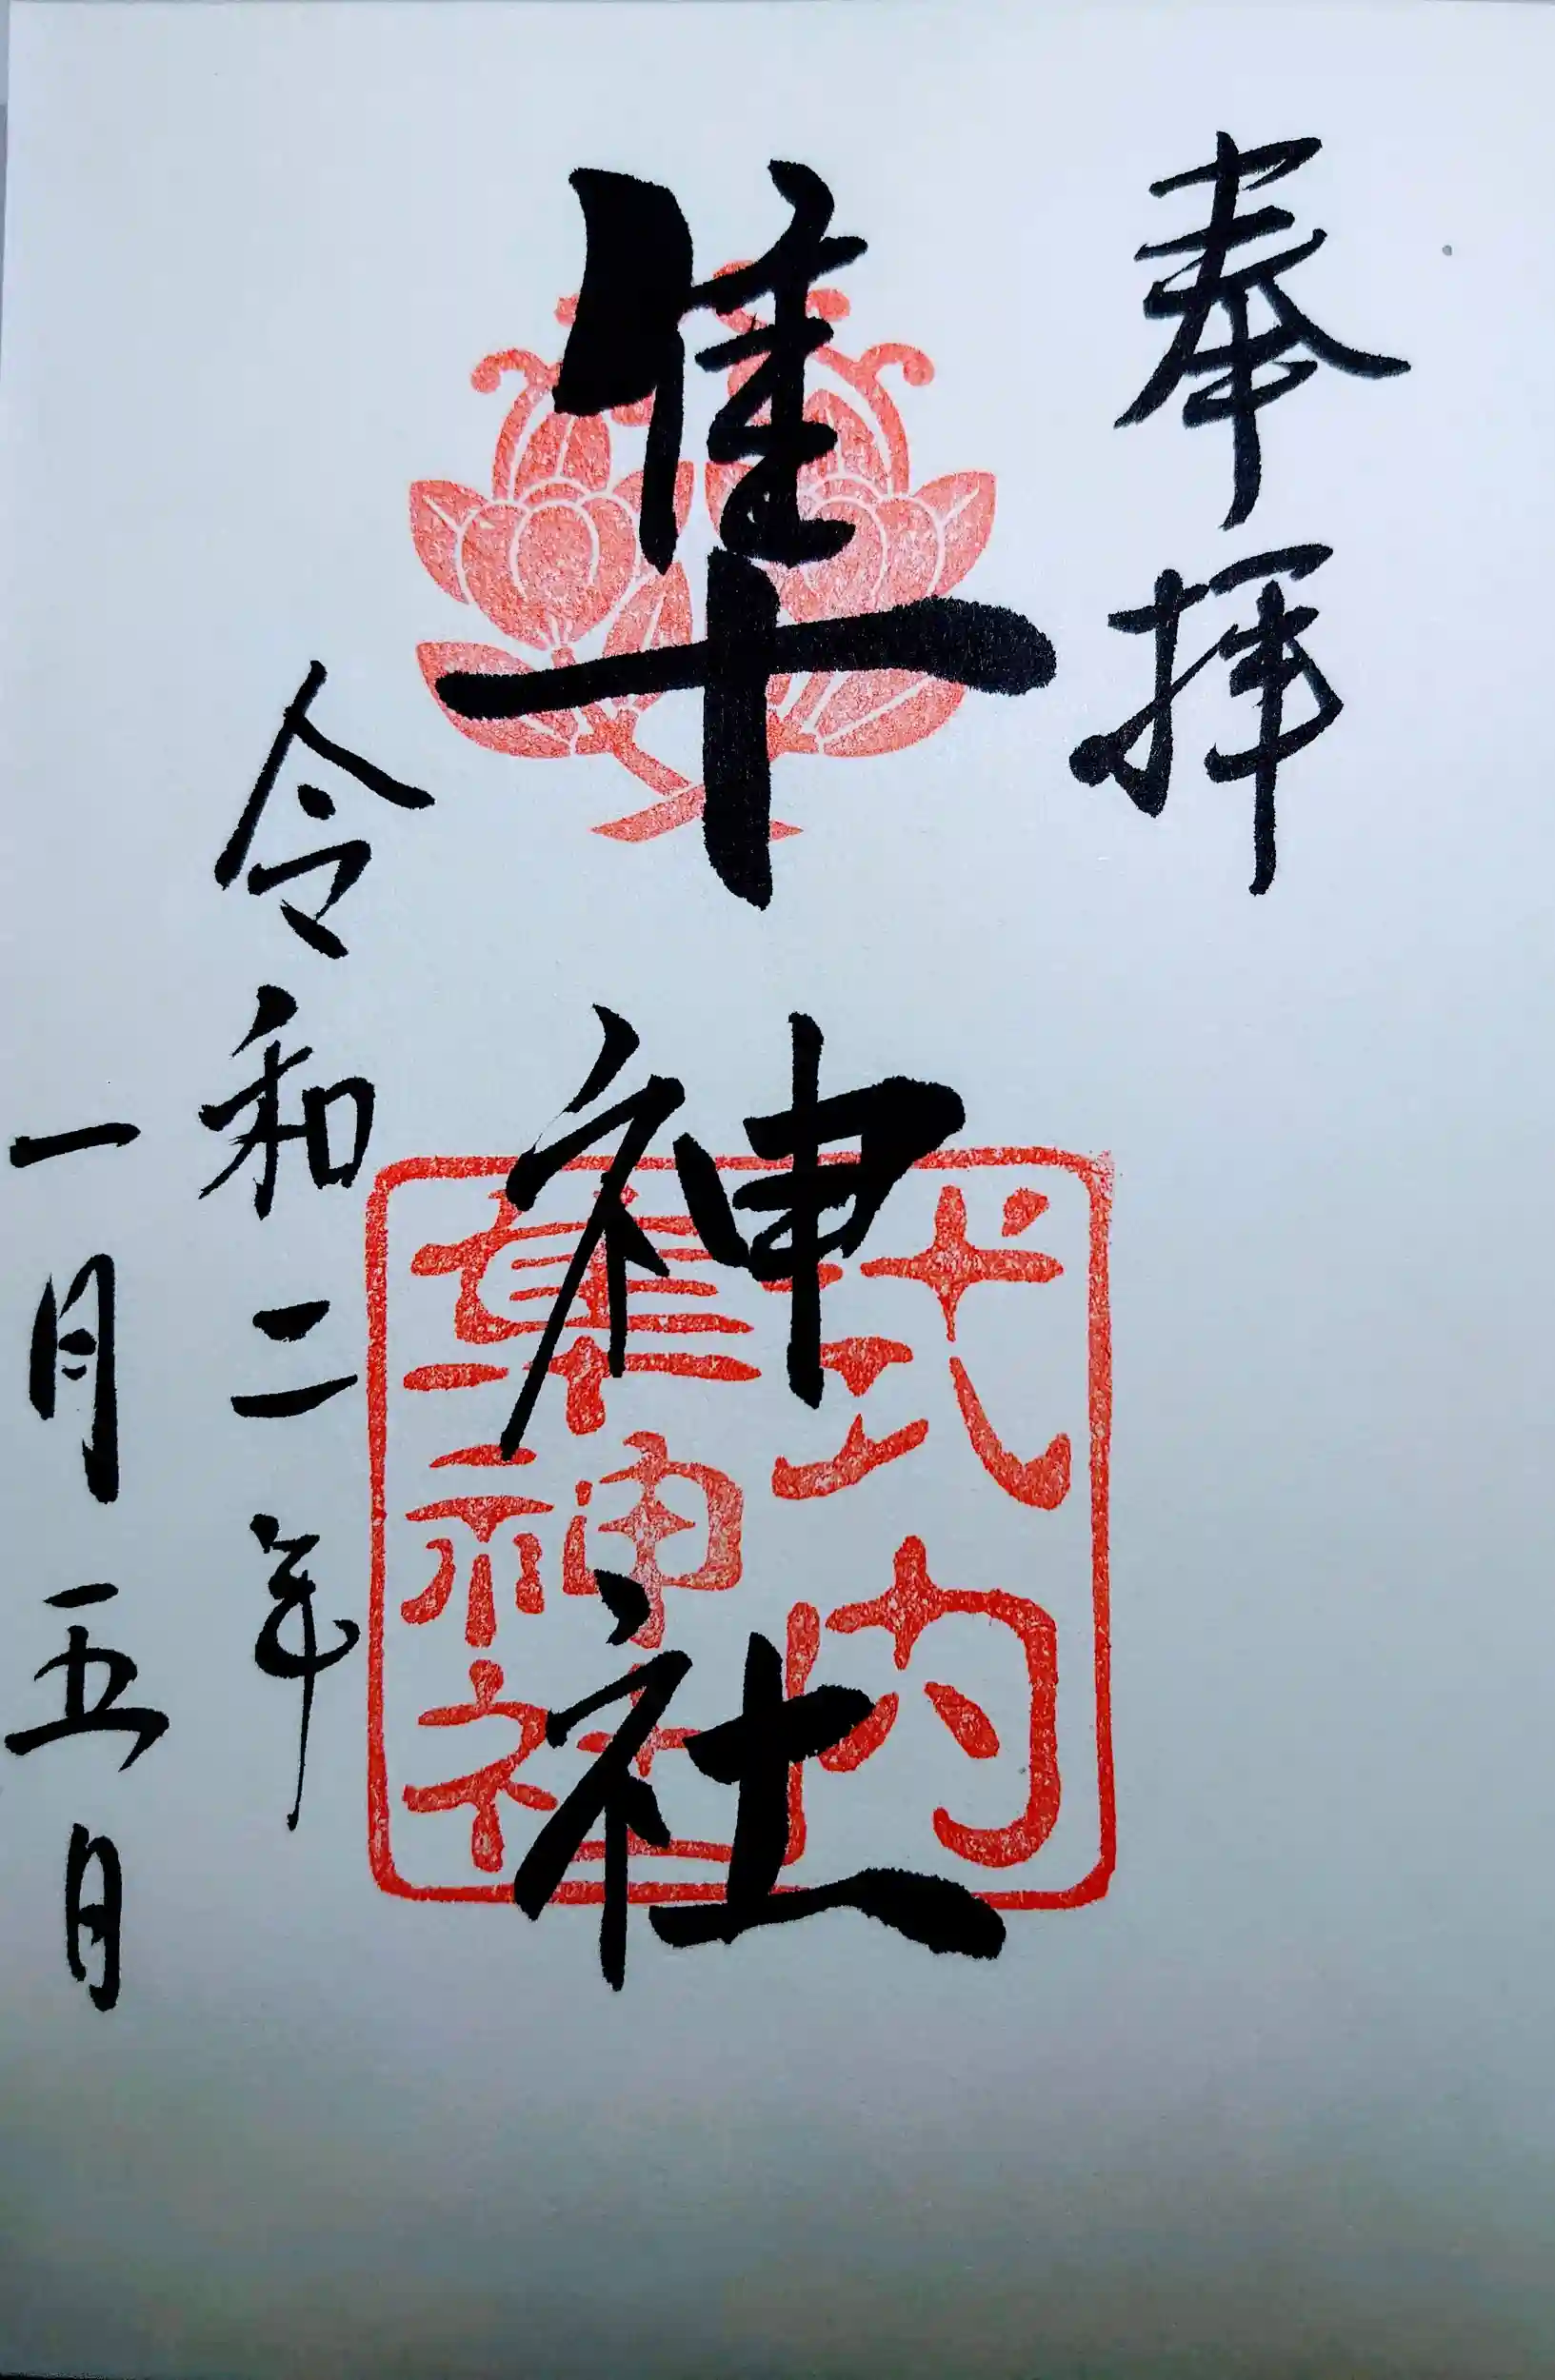 奉拝
隼神社
式内
隼神社
令和二年
一月五日